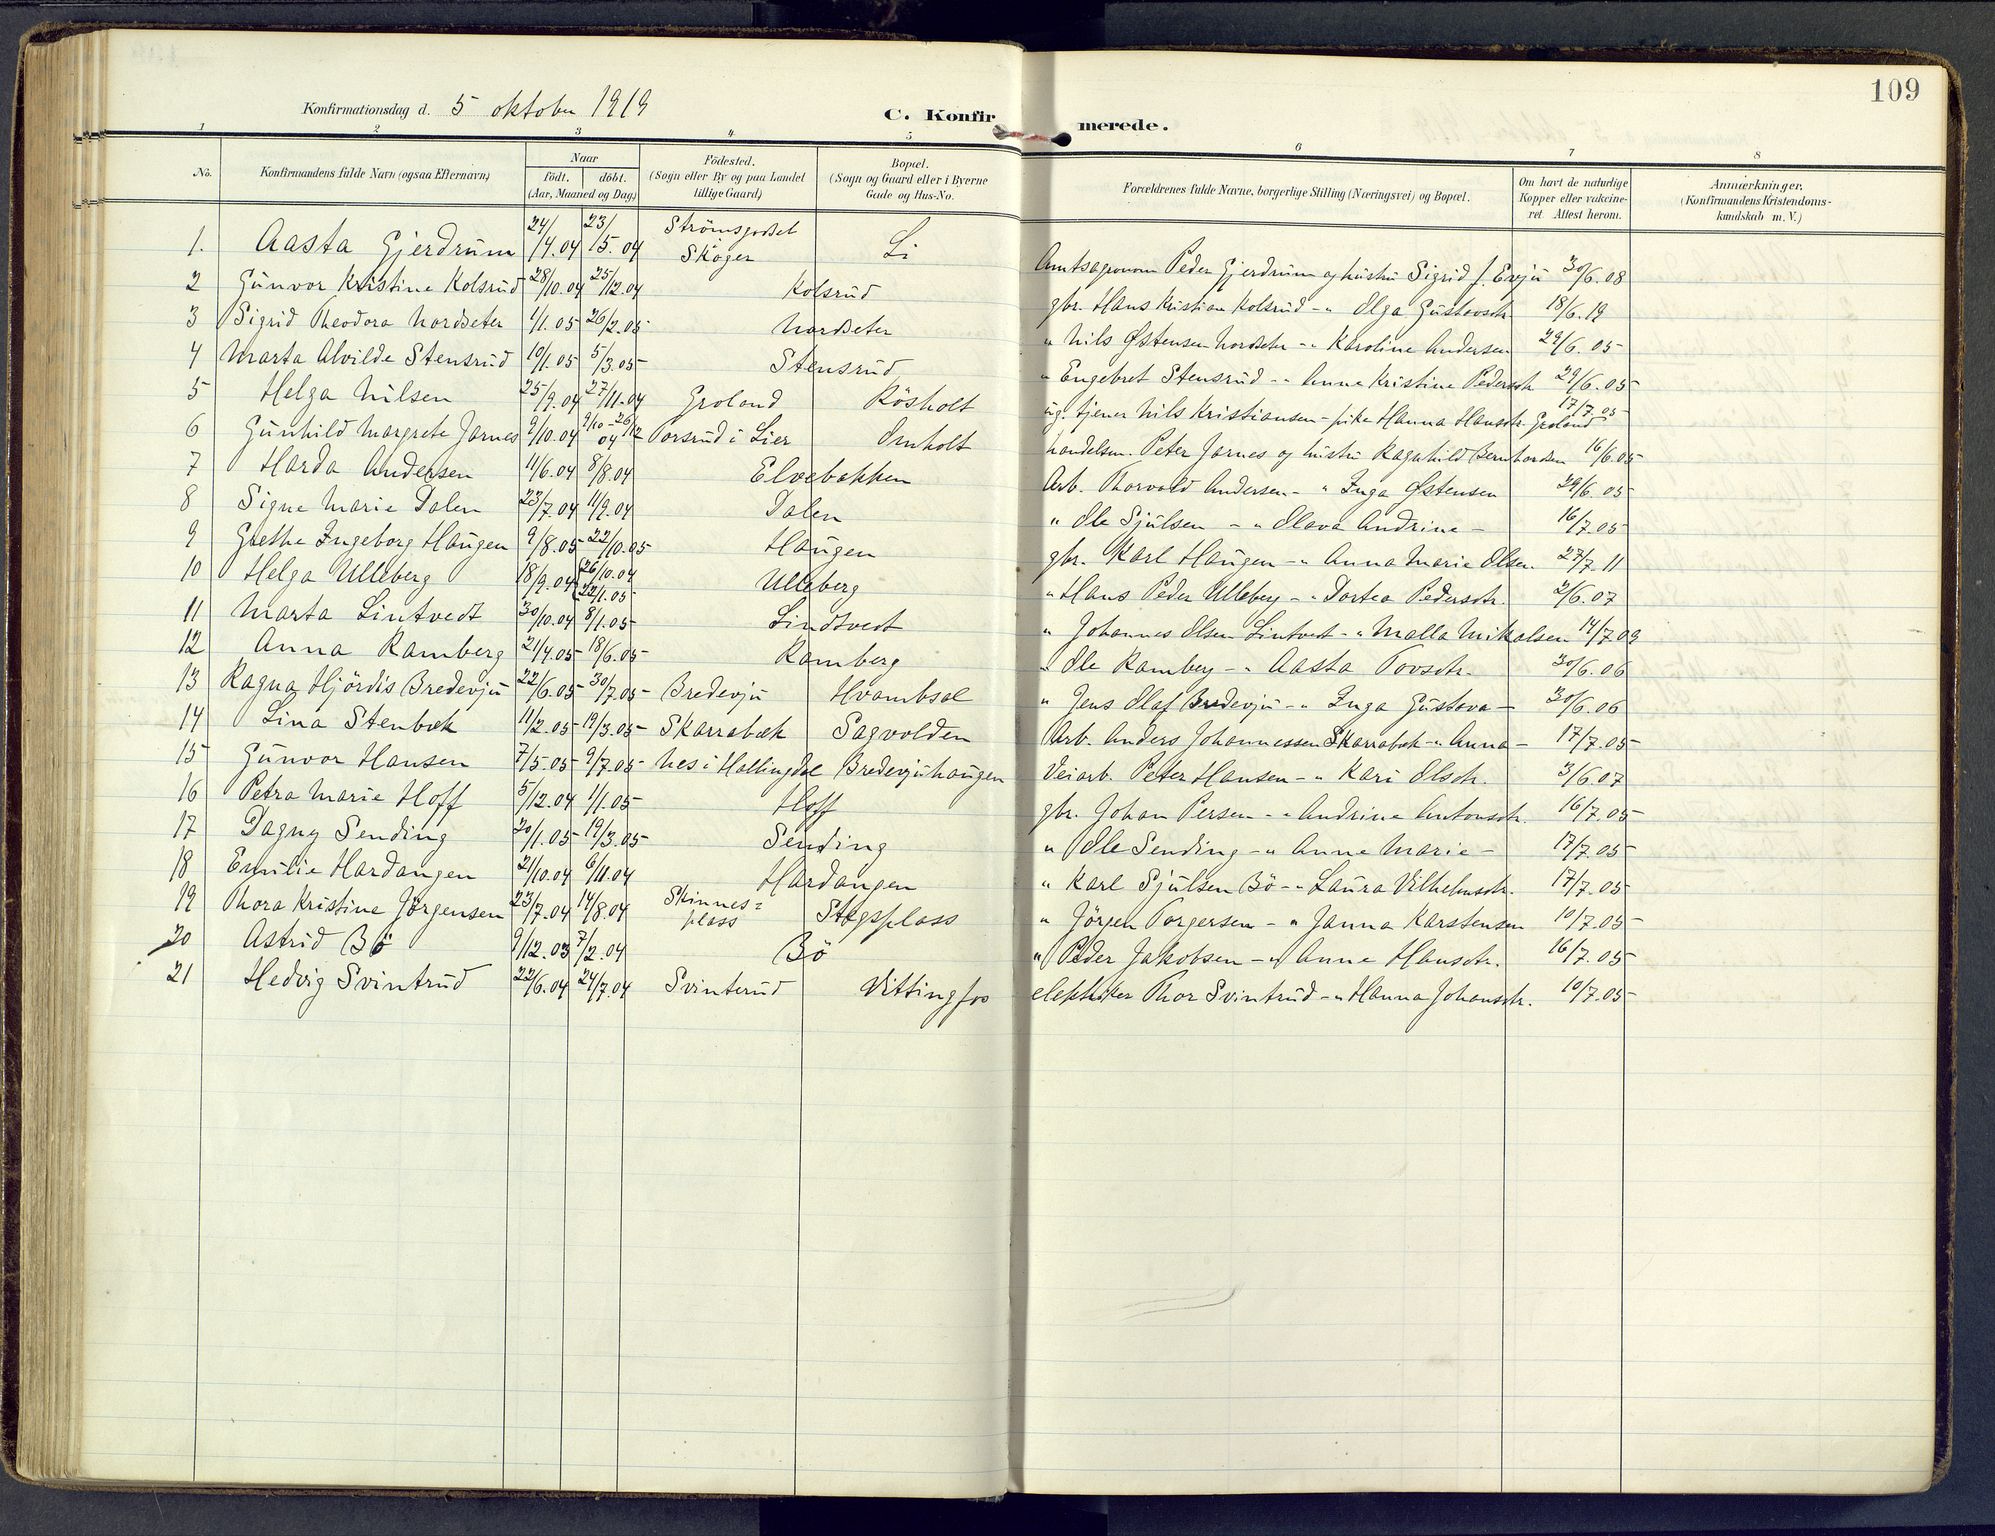 109
Konfirmationsdag d. 5 oktober 1919
C. Konfirmerede.
1 2 3 4 5 6 7 8
No. Konfirmandens fulde Navn (ogsaa Efternavn) Naar födt. döbt. (Aar, Maaned og Dag) Födested. (Sogn eller By og paa Landet tillige Gaard) Bopæl. (Sogn og Gaard eller i Byerne Gade og Hus-No. Forældrenes fulde Navne, borgerlige Stilling (Næringsvei) og Bopæl. Om havt de naturlige Kopper eller vakcineret Attest herom. Anmærkninger. (Konfirmandens Kristendomskundskab m. V.)
1. Aasta Gjerdrum 24/4.04 23/5.04 Strömsgodset Skoger Li Amtsagronom Peder Gjerdrum og hustru Sigrid f. Evju 30/6.08
2 Gunvor Kristine Kolsrud 28/10.04 25/12.04 Kolsrud gbr. Hans Kristian Kolsrud - " Olga Gustavsdtr. 18/6.19
3 Sigrid Theodora Nordseter 1/1.05 26/2.05 Nordseter " Nils Østensen Nordseter - " Karoline Andersen 29/6.05
4 Marta Alvilde Stensrud 10/1.05 5/3.05 Stensrud " Engebret Stensrud - " Anne Kristine Pedersdtr 29/6.05
5 Helga Nilsen 25/9.04 27/11.04 Groland Rösholt ug. tjener Nils Kristiansen - pike Hanna Hansdtr. Groland 17/7.05
6 Gunhild Margrete Jarnes 9/10.04 9/10-26/12 04 Torsrud i Lier Omholt handelsm. Peter Jarnes og hustru Ragnhild Bernhardsen 16/6.05
7 Harda Andersen 11/6.04 8/8.04 Elvebakken Arb. Thorvald Andersen - " Inga Østensen 29/6.05
8 Signe Marie Dalen 23/7.04 11/9.04 Dalen " Ole Sjulsen - " Olava Andrine - 16/7.05
9 Grethe Ingeborg Haugen 9/8.05 22/10.05 Haugen gbr. Karl Haugen - " Anna Marie Olsen 27/7.11
10 Helga Ulleberg 18/9.04 26/10.04 22/1.05 Ulleberg " Hans Peder Ulleberg - " Dortea Pedersdtr. 2/6.07
11 Marta Lintvedt 30/10.04 8/1.05 Lindtvedt " Johannes Olsen Lintvedt - " Malla Mikalsen 14/7.09
12 Anna Ramberg 21/4.05 18/6.05 Ramberg " Ole Ramberg - " Aasta Tovsdtr. 30/6.06
13 Ragna Hjördis Bredevju 22/6.05 30/7.05 Bredevju Hvambsal " Jens Olaf Bredevju - " Inga Gustava - 30/6.06
14 Lina Stenbæk 11/2.05 19/3.05 Skarrabæk Sagvolden Arb. Anders Johannessen Skarrabæk - " Anna - 17/7.05
15 Gunvor Hansen 7/5.05 9/7.05 Nes i Hallingdal Bredevjuhaugen Veiarb. Peter Hansen - " Kari Olsdtr. 3/6.07
16 Petra Marie Hoff 5/12.04 1/1.05 Hoff gbr. Johan Persen - " Andrine Antonsdtr. 16/7.05
17 Dagny Sending 30/1.05 19/3.05 Sending " Ole Sending - " Anne Marie - 17/7.05
18 Emilie Hardangen 21/10.04 6/11.04 Hardangen " Karl Sjulsen Bö - " Laura Vilhelmsdtr. 17/7.05
19 Thora Kristine Jörgensen 23/7.04 14/8.04 Skinnes=plass Stegsplass " Jörgen Torgersen - " Janna Karstensen 10/7.05
20 Astrid Bö 9/12.03 7/2.04 Bö " Peder Jakobsen - " Anne Hansdtr. 16/7.05
21 Hedvig Svintrud 22/6.04 24/7.04 Svinterud Vittingfos elektriker Thor Svintrud - " Hanna Johansdtr. 10/7.05